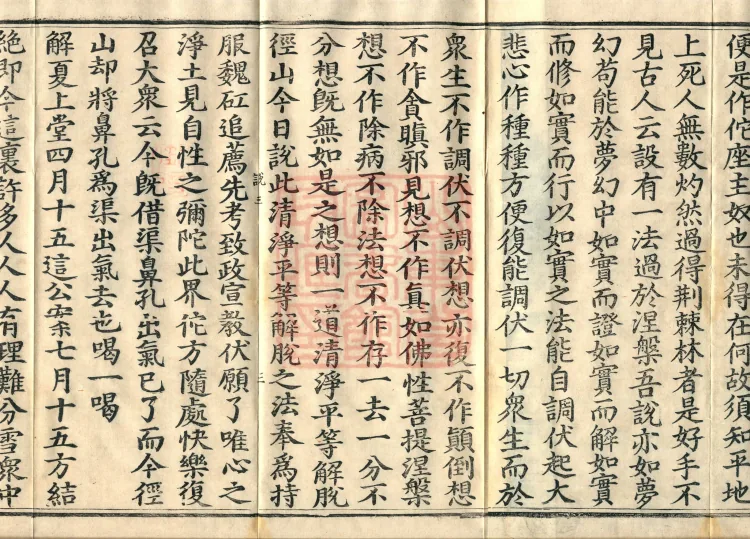 便是作佗座主奴也未得在何故須知平地
上死人無數灼然過得荆棘林者是好手不
見古人云設有一法過於涅槃吾說亦如夢
幻苟能於夢幻中如實而證如實而解如實
而修如實而行以如實之法能自調伏起大
悲心作種種方便復能調伏一切衆生而於
衆生不作調伏不調伏想亦復不作顛倒想
不作貪瞋邪見想不作眞如佛性菩提涅槃
想不作除病不除法想不作存一去一分不
分想旣無如是之想則一道清淨平等解脫
徑山今日說此清淨平等解脫之法奉爲持
說三
三
服魏矼追薦先考致政宣教伏願了唯心之
淨土見自性之彌陀此界佗方隨處快樂復
召大衆云今旣借渠鼻孔出氣已了而今徑
山却將鼻孔爲渠出氣去也喝一喝
解夏上堂四月十五這公案七月十五方結
絕即今這裏許多人人人有理難分雪衆中